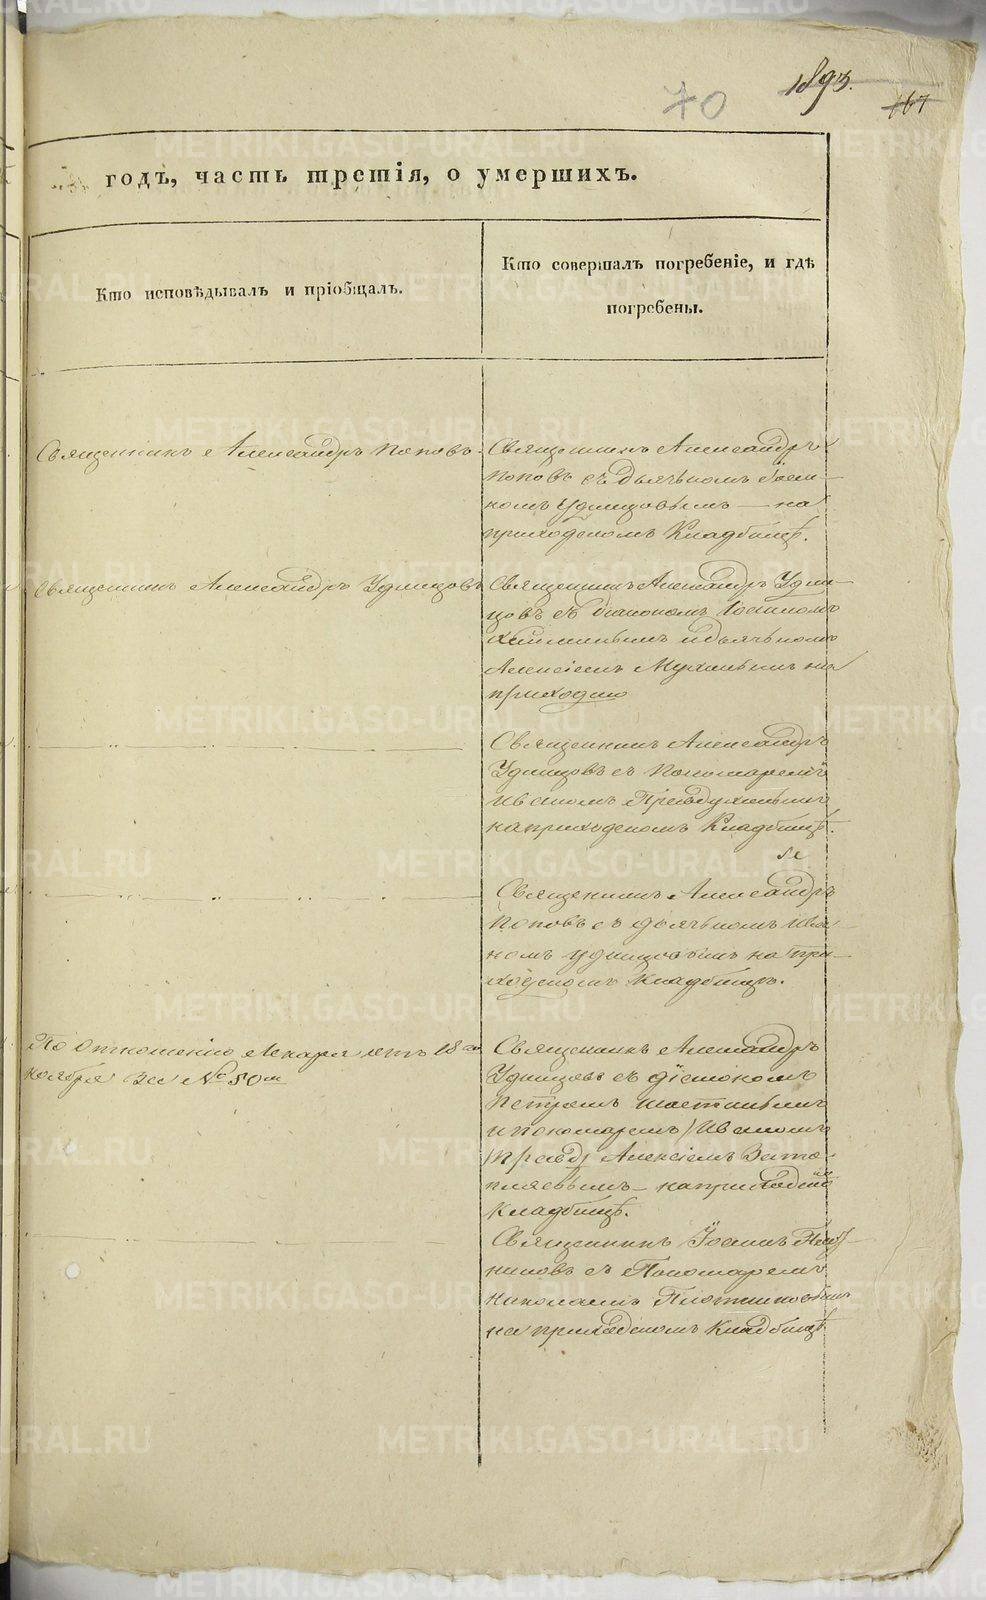 70
1893.
167
годъ, часть третія, о умершихъ.
Кто исповѣдывалъ и пріобщалъ.
Кто совершалъ погребеніе, и гдѣ
погребены.
Священникъ Александръ Поповъ.
Священникъ Александръ
Поповъ съ дьячкомъ Іоан-
номъ Удинцовымъ — на
приходскомъ Кладбищѣ.
Священникъ Александръ Удинцовъ
Священникъ Александръ Удин-
цовъ съ діакономъ
и дьячкомъ
Алексіемъ на
приходскомъ
Священникъ Александръ
Удинцовъ съ Пономаремъ
Иваномъ
на приходскомъ Кладбищѣ.
Священникъ Александръ
Поповъ съ дьячкомъ Ива-
номъ Удинцовымъ на при-
ходскомъ Кладбищѣ.
По отношенію Лекаря отъ 18го
ноября за № 50м
Священникъ Александръ
Удинцовъ съ діакономъ
Петромъ
и пономаремъ Иваномъ
Алексіемъ
на приходскомъ
Кладбищѣ.
Священникъ Іоаннъ
съ Пономаремъ
Николаемъ Плотниковымъ
на приходскомъ Кладбищѣ
METRIKI.GASO-URAL.RU